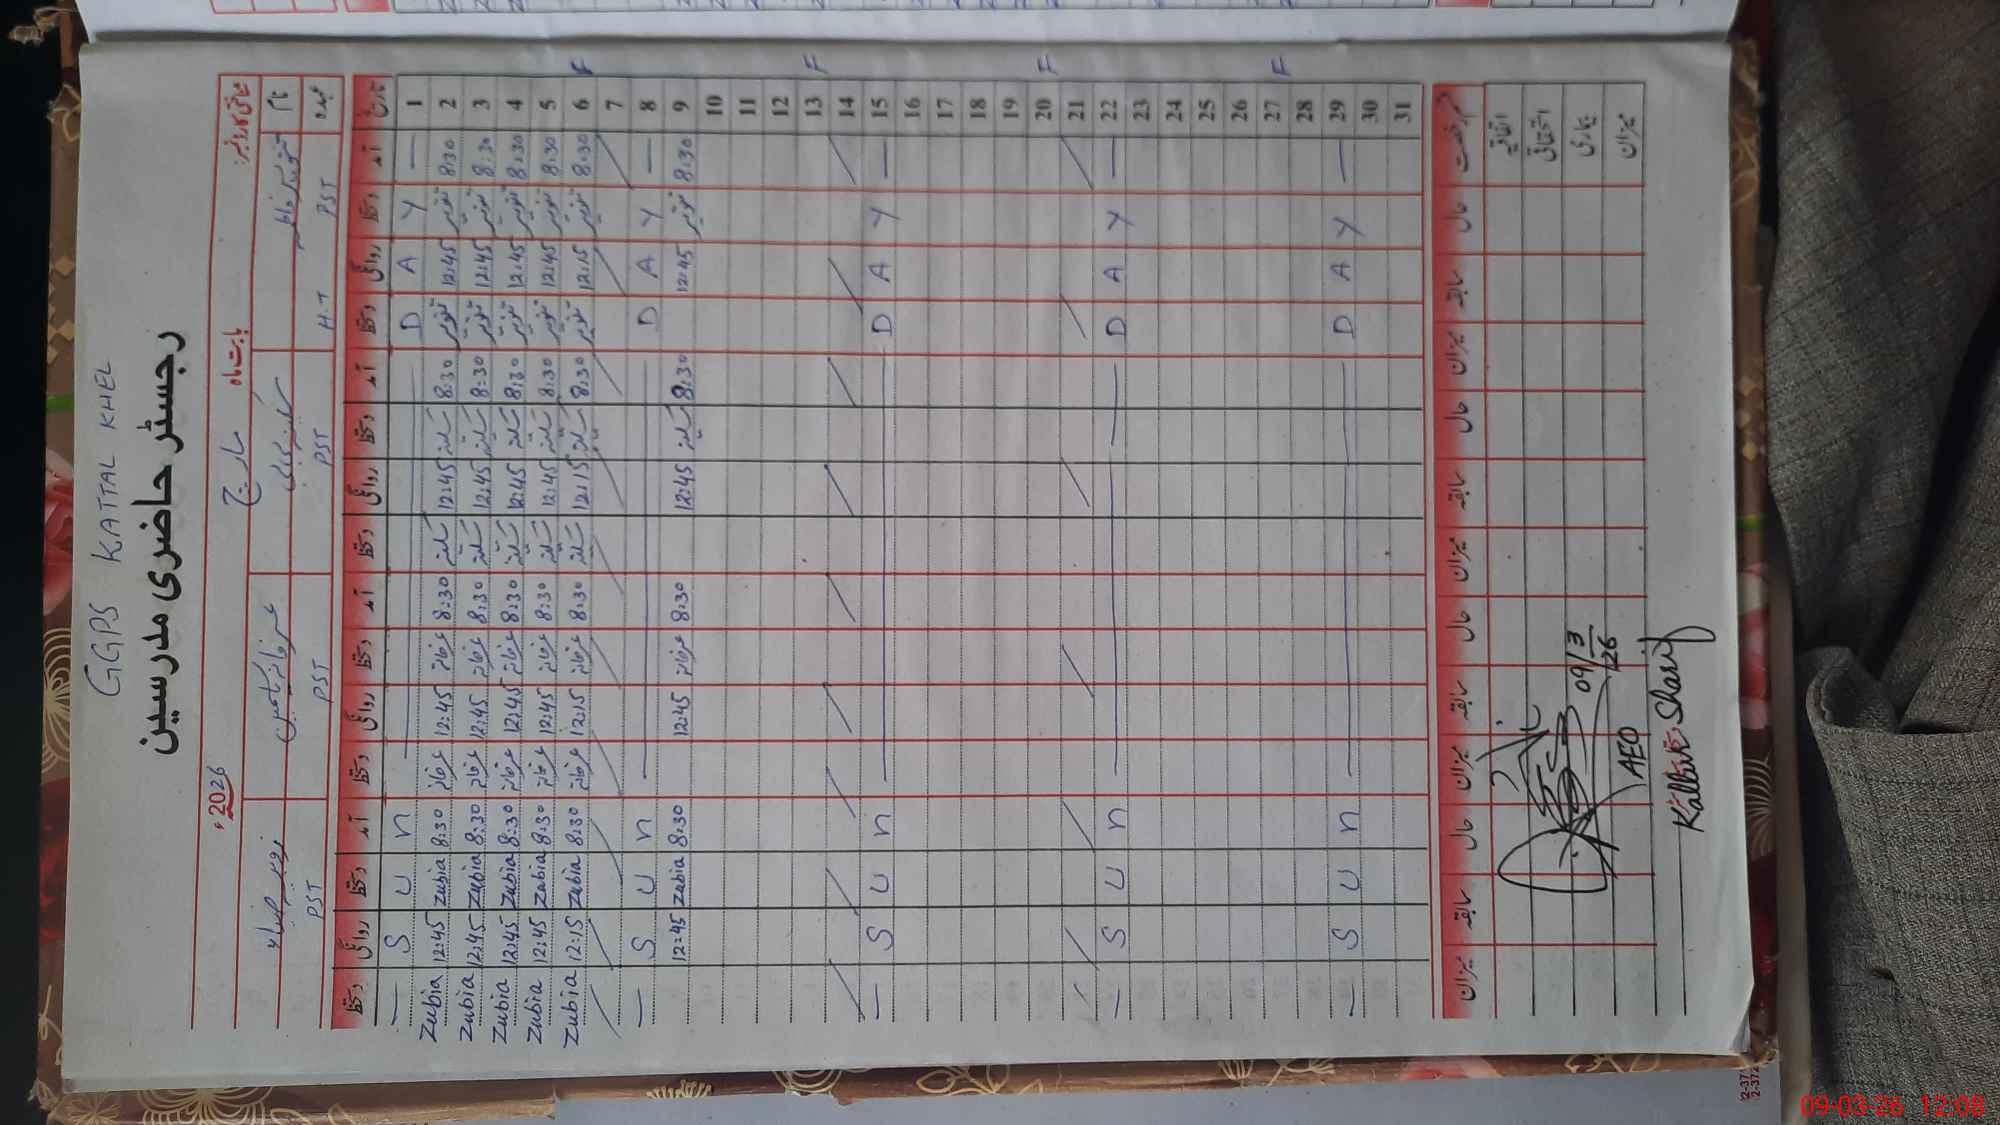 GGPS KATTAL KHEL
رجسٹر حاضری مدرسین
بابت ماہ مارچ 2026ء
نام
عہدہ H.T PST PST PST PST
تاریخ آمد دستخط روانگی دستخط آمد دستخط روانگی دستخط آمد دستخط روانگی دستخط آمد دستخط روانگی دستخط
1 — Y A D n U S —
2 8:30 تنویر 12:45 تنویر 8:30 سکینہ 12:45 سکینہ 8:30 عرفانہ 12:45 عرفانہ 8:30 Zubia 12:45 Zubia
3 8:30 تنویر 12:45 تنویر 8:30 سکینہ 12:45 سکینہ 8:30 عرفانہ 12:45 عرفانہ 8:30 Zubia 12:45 Zubia
4 8:30 تنویر 12:45 تنویر 8:30 سکینہ 12:45 سکینہ 8:30 عرفانہ 12:45 عرفانہ 8:30 Zubia 12:45 Zubia
5 8:30 تنویر 12:45 تنویر 8:30 سکینہ 12:45 سکینہ 8:30 عرفانہ 12:45 عرفانہ 8:30 Zubia 12:45 Zubia
F 6 8:30 تنویر 12:15 تنویر 8:30 سکینہ 12:15 سکینہ 8:30 عرفانہ 12:15 عرفانہ 8:30 Zubia 12:15 Zubia
7
8 — Y A D n U S —
9 8:30 تنویر 12:45 8:30 سکینہ 12:45 8:30 عرفانہ 12:45 8:30 Zubia 12:45
10
11
12
F 13
14
15 — Y A D n U S —
16
17
18
19
F 20
21
22 — Y A D n U S —
23
24
25
26
F 27
28
29 — Y A D n U S —
30
31
حال سابقہ میزان حال سابقہ میزان حال سابقہ میزان حال سابقہ میزان
اتفاقیہ
استحقاقی
بیماری
میزان
09/3/26
AEO
Sharif
09-03-26 12:08